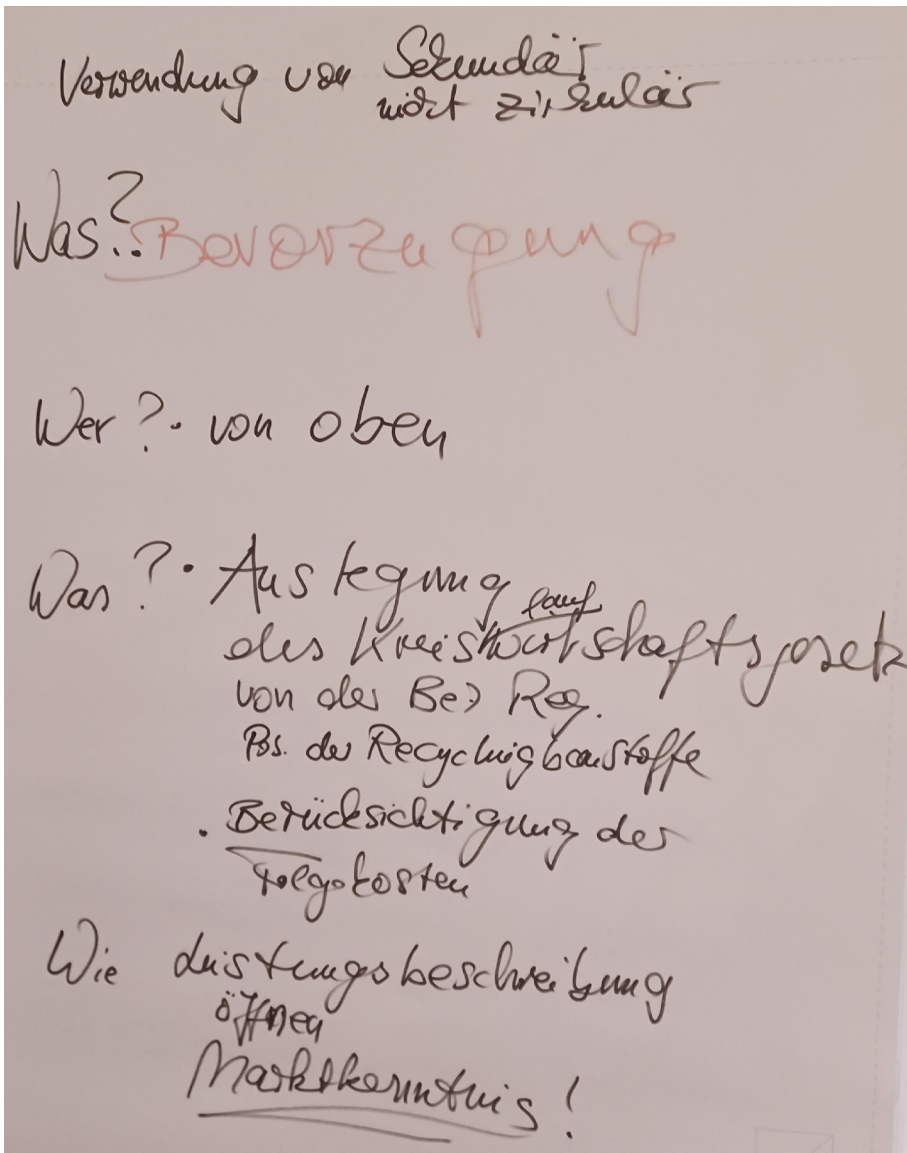 Verwendung von Sekundär
nicht zirkulär
Was?. Bevorzugung
Wer?. von oben
Was?. Auslegung
des Kreislaufwirtschaftsgesetz
von der Reg.
Pos. der Recyclingbaustoffe
. Berücksichtigung der
Folgekosten
Wie Leistungsbeschreibung
öffnen
Marktkenntnis!